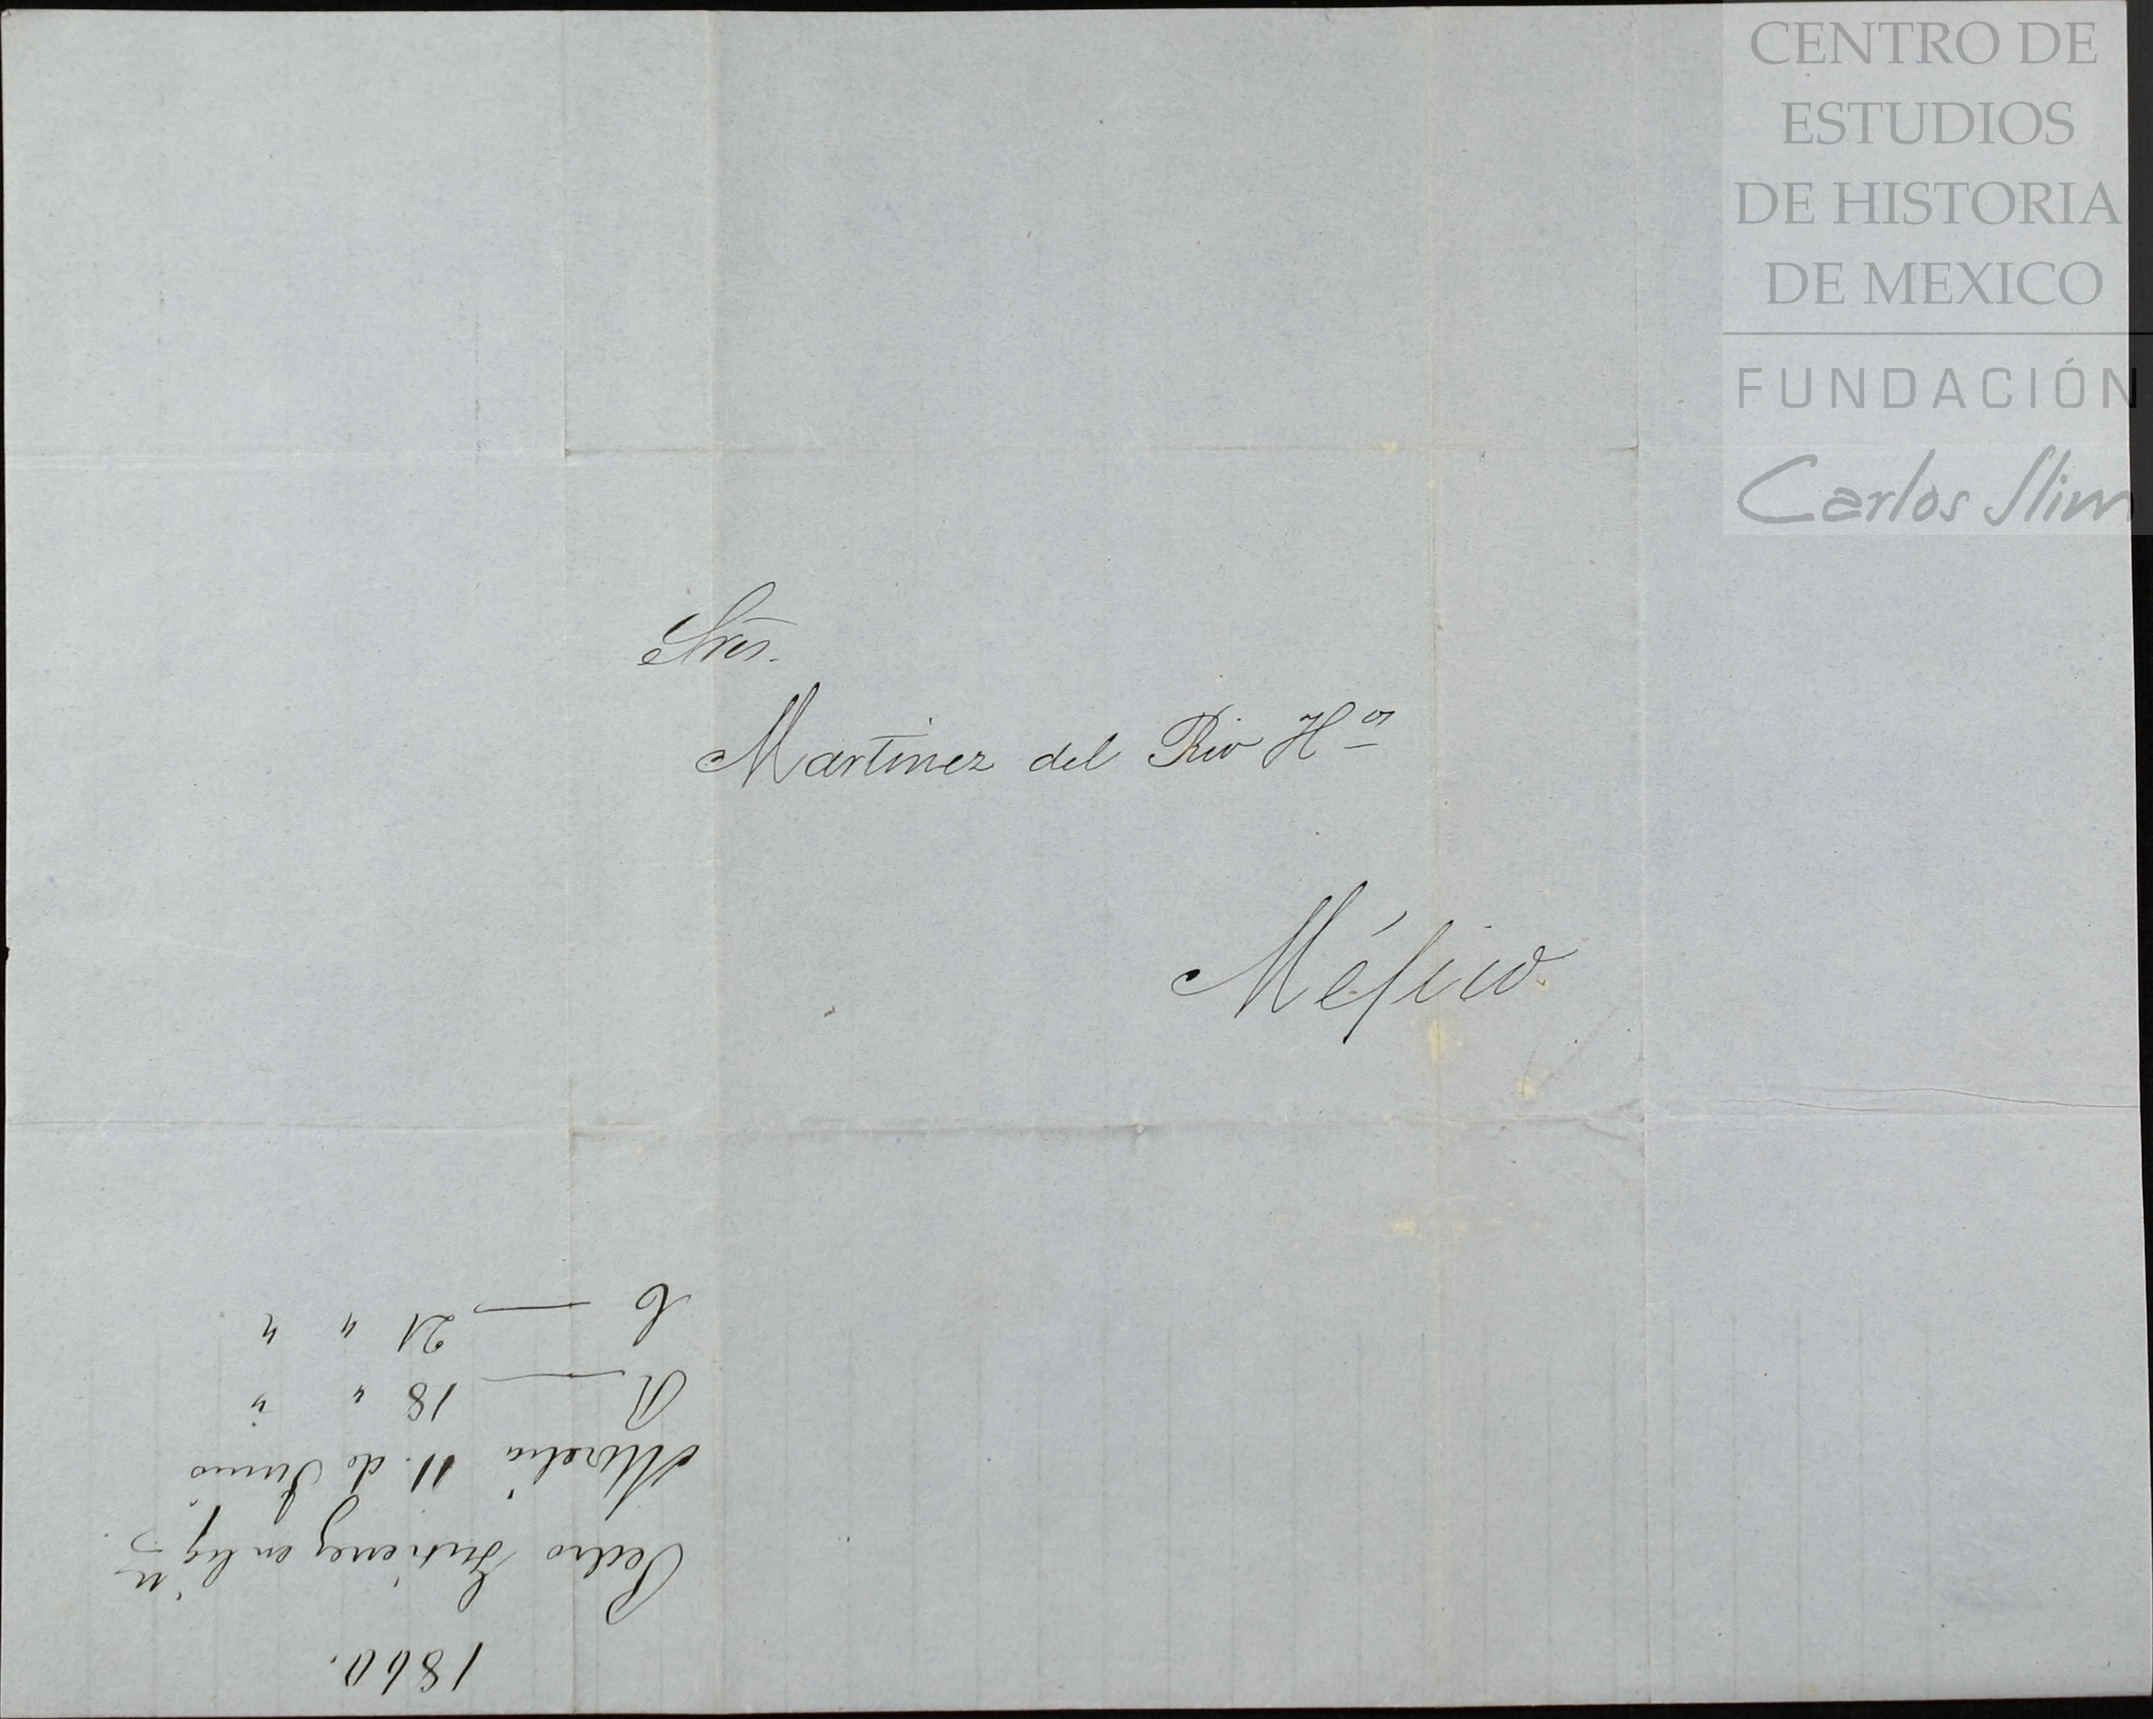 CENTRO DE
ESTUDIOS
DE HISTORIA
DE MEXICO
FUNDACIÓN
Carlos Slim
Sres.
Martinez del Rio H.os
Méjico.
1860.
Pedro Gutierrez en liq.n
Morelia 11. de Junio
R — 18 " "
C — 21 " "